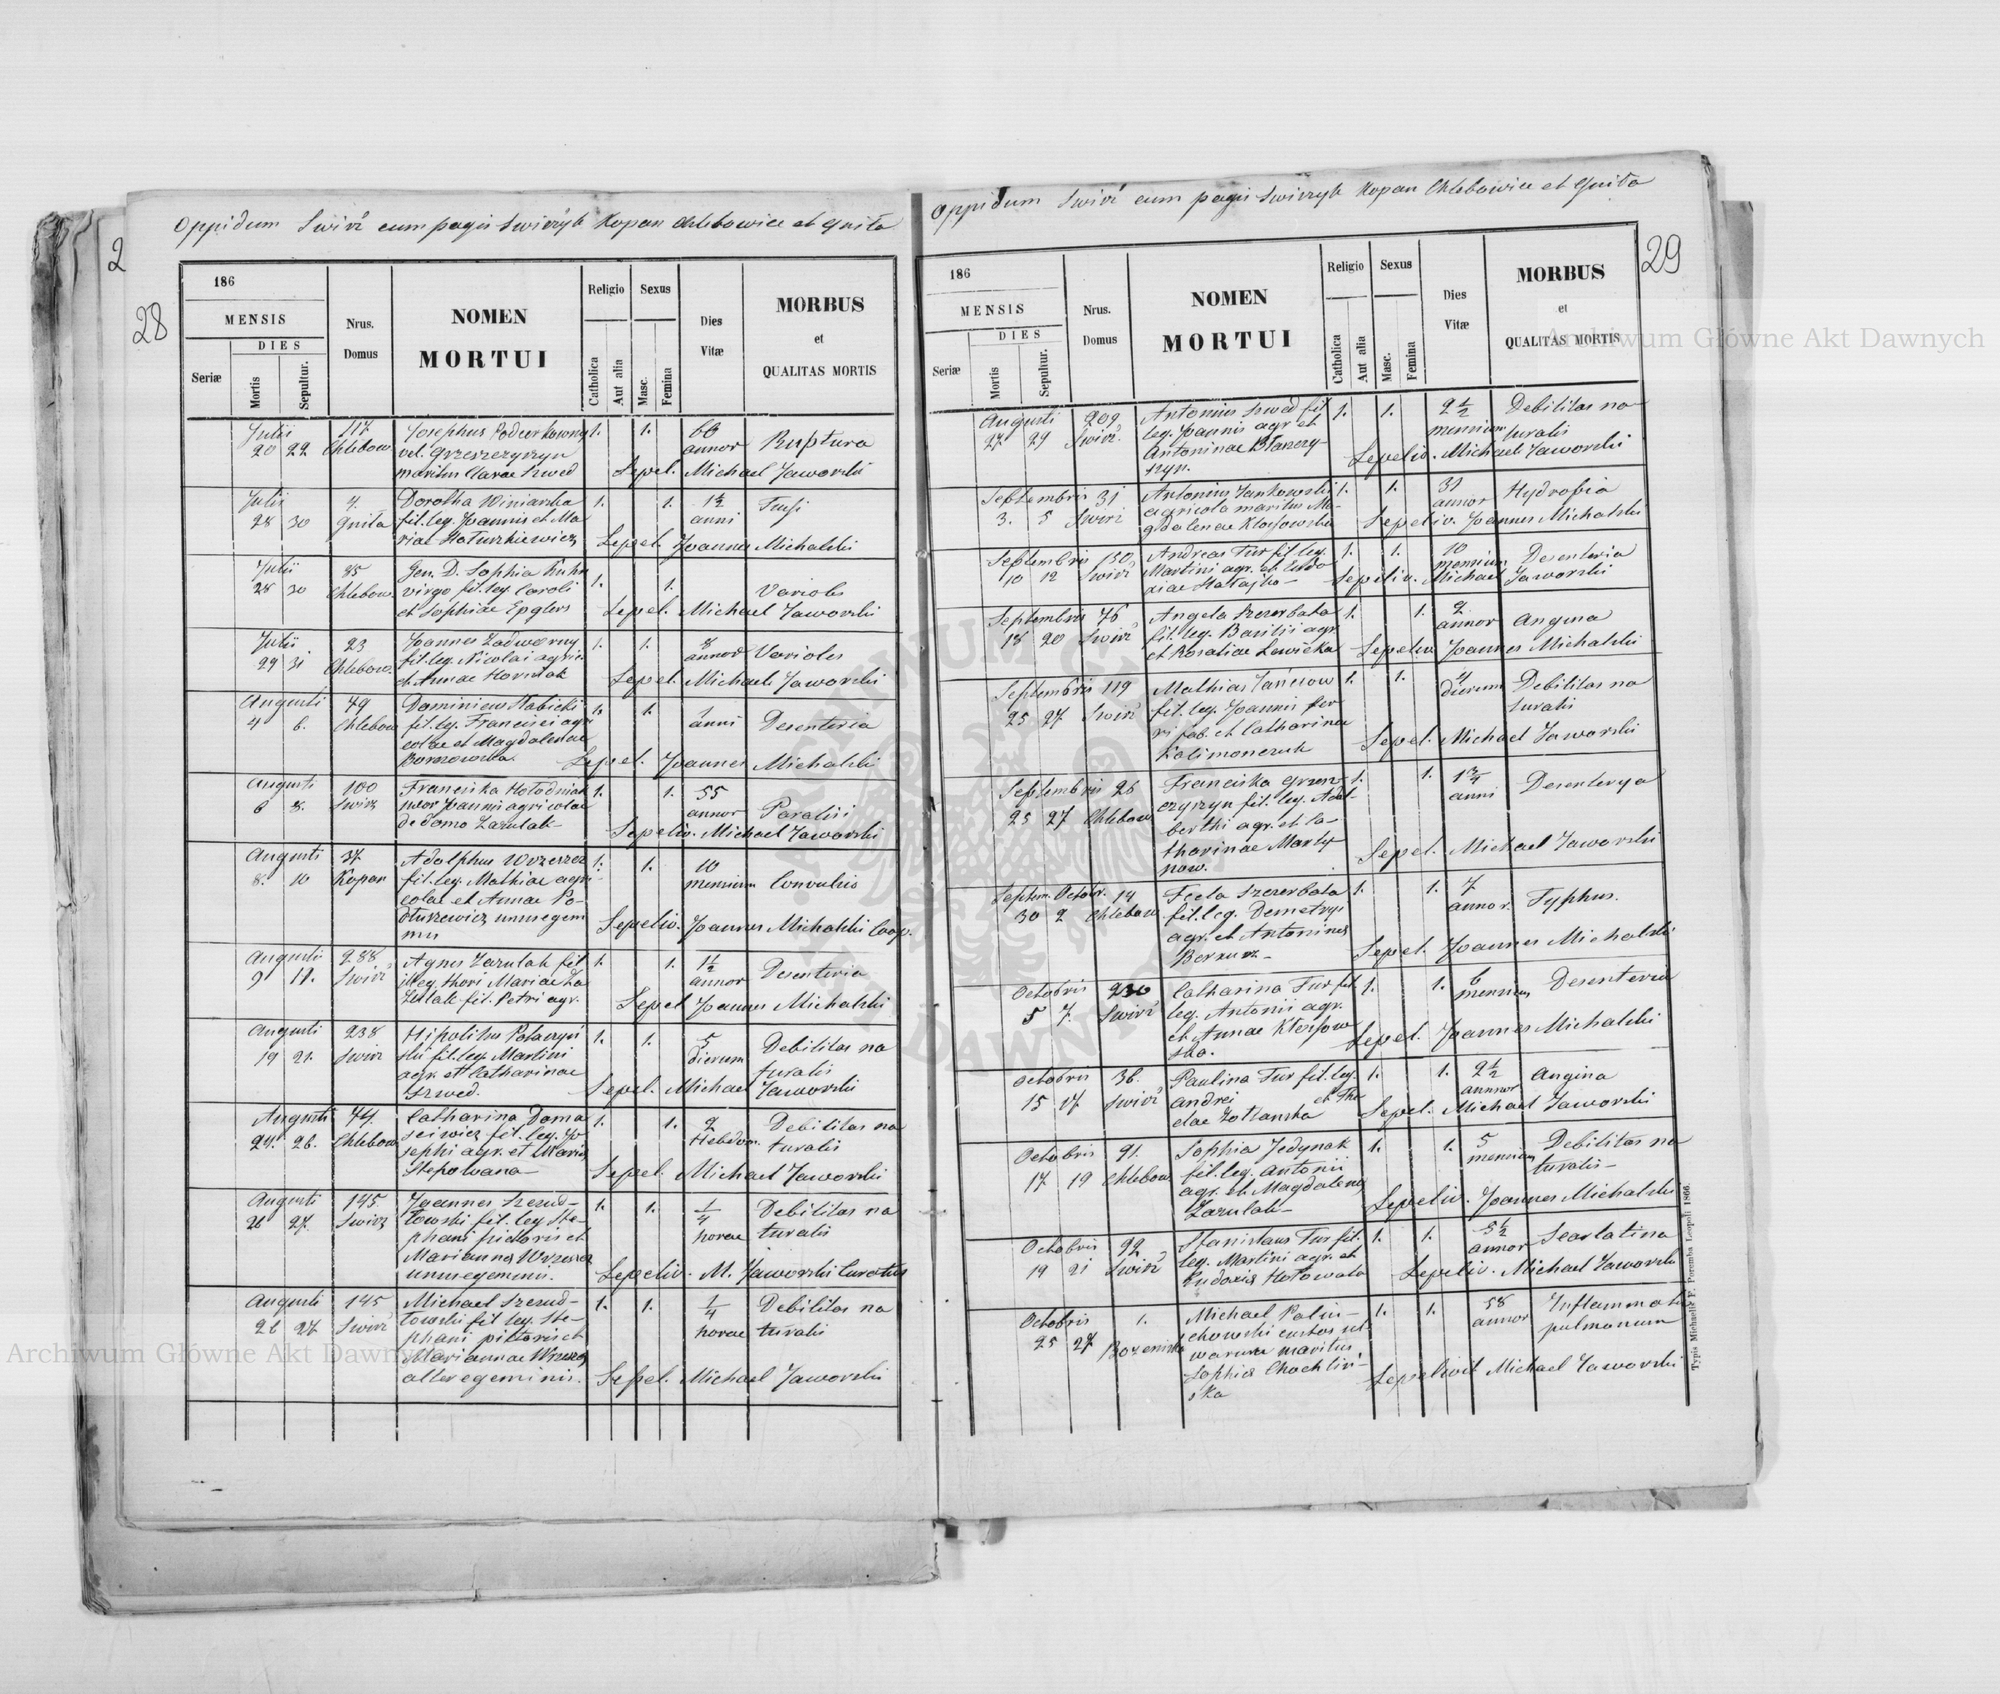 Oppidum Swirż cum pagis Swirzyk Kopan Chlebowice et Gniła
2
28
186
MENSIS
DIES
Seriæ
Mortis
Sepultur.
Nrus.
Domus
NOMEN
MORTUI
Religio
Catholica
Aut alia
Sexus
Masc.
Femina
Dies
Vitæ
MORBUS
et
QUALITAS MORTIS
Julii 117 Josephus 1. 1. 60
20 22 Chlebow. vel Grzeszczyszyn annor Ruptura
maritus Clarae Szwed Sepel. Michael Jaworski
Julii 4. Dorotha Winiarska 1. 1. 1½ Tussi
28 30 Gniła fil. leg. Joannis et Ma anni
riae Sepel. Joannes Michalski
Julii 35 Gen. D. Sophia Kuhn
28 30 Chlebow. virgo fil. leg. Caroli 1. 1. Variolis
et Sophiae Sepel. Michael Jaworski
Julii 23 Joannes Zadworny 1. 1. annor Variolis
29 31 Chlebow. fil. leg. Nicolai agric.
et Annae Sepel. Michael Jaworski
Augusti 49 Dominicus 1. 1. 1
4 6. Chlebow fil. leg. Francisci agri anni Desenteria
colae et Magdalenae
Sepel. Joannes Michalski
Augusti 100 Franciska Hołodniak 1. 1. 55
6 8. Swirz uxor Joannis agricolae annor Paralisi
de domo Zazulak Sepeliv. Michael Jaworski
Augusti 37 Adolphus Wrzeszcz 1. 1. 10
8. 10 Kopan fil. leg. Mathiae agri- mensium Convulsio
colae et Annae Po-
unus gem Sepeliv. Joannes Michalski Coop.
Augusti 288 Agnes Zazulak fil 1. 1. 1½
9 11. Swirż illeg. thori Mariae Za annor Desenteria
zulak fil. Petri agr. Sepel Joannes Michalski
Augusti 238 Hipolitus 1. 1. 5 Debilitas na
19 21. Swirż ski fil. leg. Martini dierum turalis
agr. et Catharinae
Szwed. Sepel. Michael Jaworski
Augusti 74. Catharina Doma 1. 1. 2 Debilitas na
24. 26. Chlebow. fil. leg. Jo Hebdom. turalis
sephi agr. et Mariae
Stepowana Sepel. Michael Jaworski
Augusti 145 Joannes Szcud- 1. 1. ¼ Debilitas na
26 27. Swirz łowski fil. leg. Ste- horae turalis
phani pictoris et
Mariannae Wrzeszcz
unus gemin. Sepeliv. M. Jaworski Curatus
Augusti 145 Michael Szcud- 1. 1. ¼ Debilitas na
26 27 Swirż łowski fil leg. Ste- horae turalis
phani pictoris et
Mariannae Wrzeszcz
alter geminis. Sepel. Michael Jaworski
Oppidum Swirż cum pagis Swirzyk Kopan Chlebowice et Gniła
29
186
MENSIS
DIES
Seriæ
Mortis
Sepultur.
Nrus.
Domus
NOMEN
MORTUI
Religio
Catholica
Aut alia
Sexus
Masc.
Femina
Dies
Vitæ
MORBUS
et
QUALITAS MORTIS
Augusti 209 Antonius Szwed fil 1. 1. 2½ Debilitas na
27 29 Swirż. leg. Joannis agr et mensium turalis
Antoninae
Sepeliv. Michael Jaworski
Septembris 31 Antonius Jankowski 1. 1. 31 Hydrofia
3. 5 Swirż agricola maritus Ma- annor
gdalenae Sepeliv. Joannes Michalski
Septembris 130 Andreas Tur fil. leg. 1. 1. 10 Desenteria
10 12 Swirż Martini agr. et Eudo mensium
xiae Sepeliv. Michael Jaworski
Septembris 76 Angela Szczerbata 1. 1. 2 Angina
18 20 Swirż fil. leg. Basilii agr. annor
et Rosaliae Lewicka Sepeliv Joannes Michalski
Septembris 119 Mathias 1. 1. 4 Debilitas na
25 27 Swirż fil. leg. Joannis fer dierum turalis
ri fab. et Catharinae
Kalimonczuk Sepel. Michael Jaworski
Septembris 26 Franciska Grzesz 1. 1. 1¾ Desenterya
25 27 Chlebow czyszyn fil. leg. Adal- anni
berthi agr. et Ca-
tharinae Marty
now. Sepel. Michael Jaworski
Septem. Octobr. 14 Tecla Szczerbata 1. 1. 7 Typhus.
30 2 Chlebow fil. leg. Demetrii annor.
agr. et Antoninae
Sepel. Joannes Michalski
Octobris 230 Catharina Tur fil 1. 1. 6 Desenteria
5 7. Swirż leg. Antonii agr. mensium
et Annae
ska. Sepel. Joannes Michalski
Octobris 36. Paulina Tur fil. leg. 1. 1. 2½ Angina
15 17 Swirż Andrei et The annor
clae Sepel. Michael Jaworski
Octobris 91. Sophia Jedynak 1. 1. 5 Debilitas na
17 19 Chlebow. fil. leg. Antonii mensium turalis
agr. et Magdalenae
Zazulak Sepeliv. Joannes Michalski
Octobris 92 Stanislaus Tur fil. 1. 1. 5½ Scarlatina
19 21 Swirż leg. Martini agr. et annor
Eudoxiae Sepeliv. Michael Jaworski
Octobris 1. Michael 1. 1. 58 Inflammatio
25 27 custos annor pulmonum
maritus
Sophiae
ska Sepelivit Michael Jaworski
Typis Michaelis F. Poremba Leopoli 1866.
Archiwum Główne Akt Dawnych
Archiwum Główne Akt Dawnych